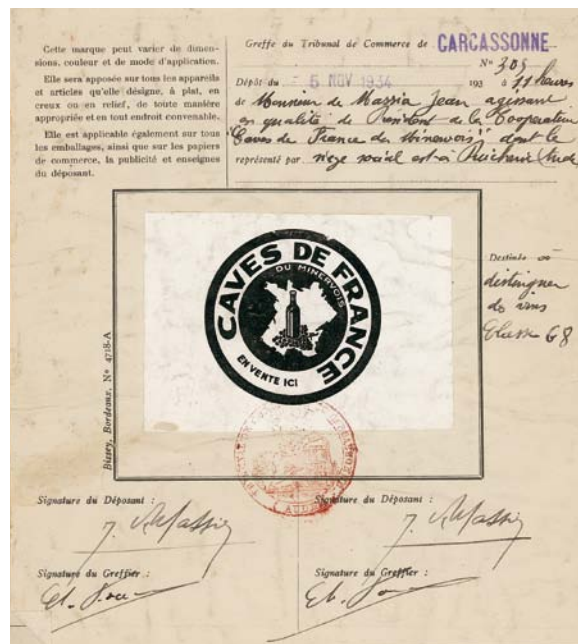 Cette marque peut varier de dimen-
sions, couleur et de mode d'application.
Elle sera apposée sur tous les appareils
et articles qu'elle désigne, à plat, en
creux ou en relief, de toute manière
appropriée et en tout endroit convenable.
Elle est applicable également sur tous
les emballages, ainsi que sur les papiers
de commerce, la publicité et enseignes
du déposant.
Greffe du Tribunal de Commerce de CARCASSONNE
N° 305
Dépôt du 5 NOV 1934 193 à 11 heures
de Monsieur de Massia Jean agissant
en qualité de Président de la Coopérative
"Caves de France du Minervois" dont le
représenté par siège social est à Puicheric (Aude)
CAVES DE FRANCE
DU MINERVOIS
EN VENTE ICI
Destinée à
distinguer
des vins
Classe 68
Bissey, Bordeaux, N° 4718-A
Signature du Déposant :
J. Massia
Signature du Déposant :
J. Massia
Signature du Greffier :
Signature du Greffier :